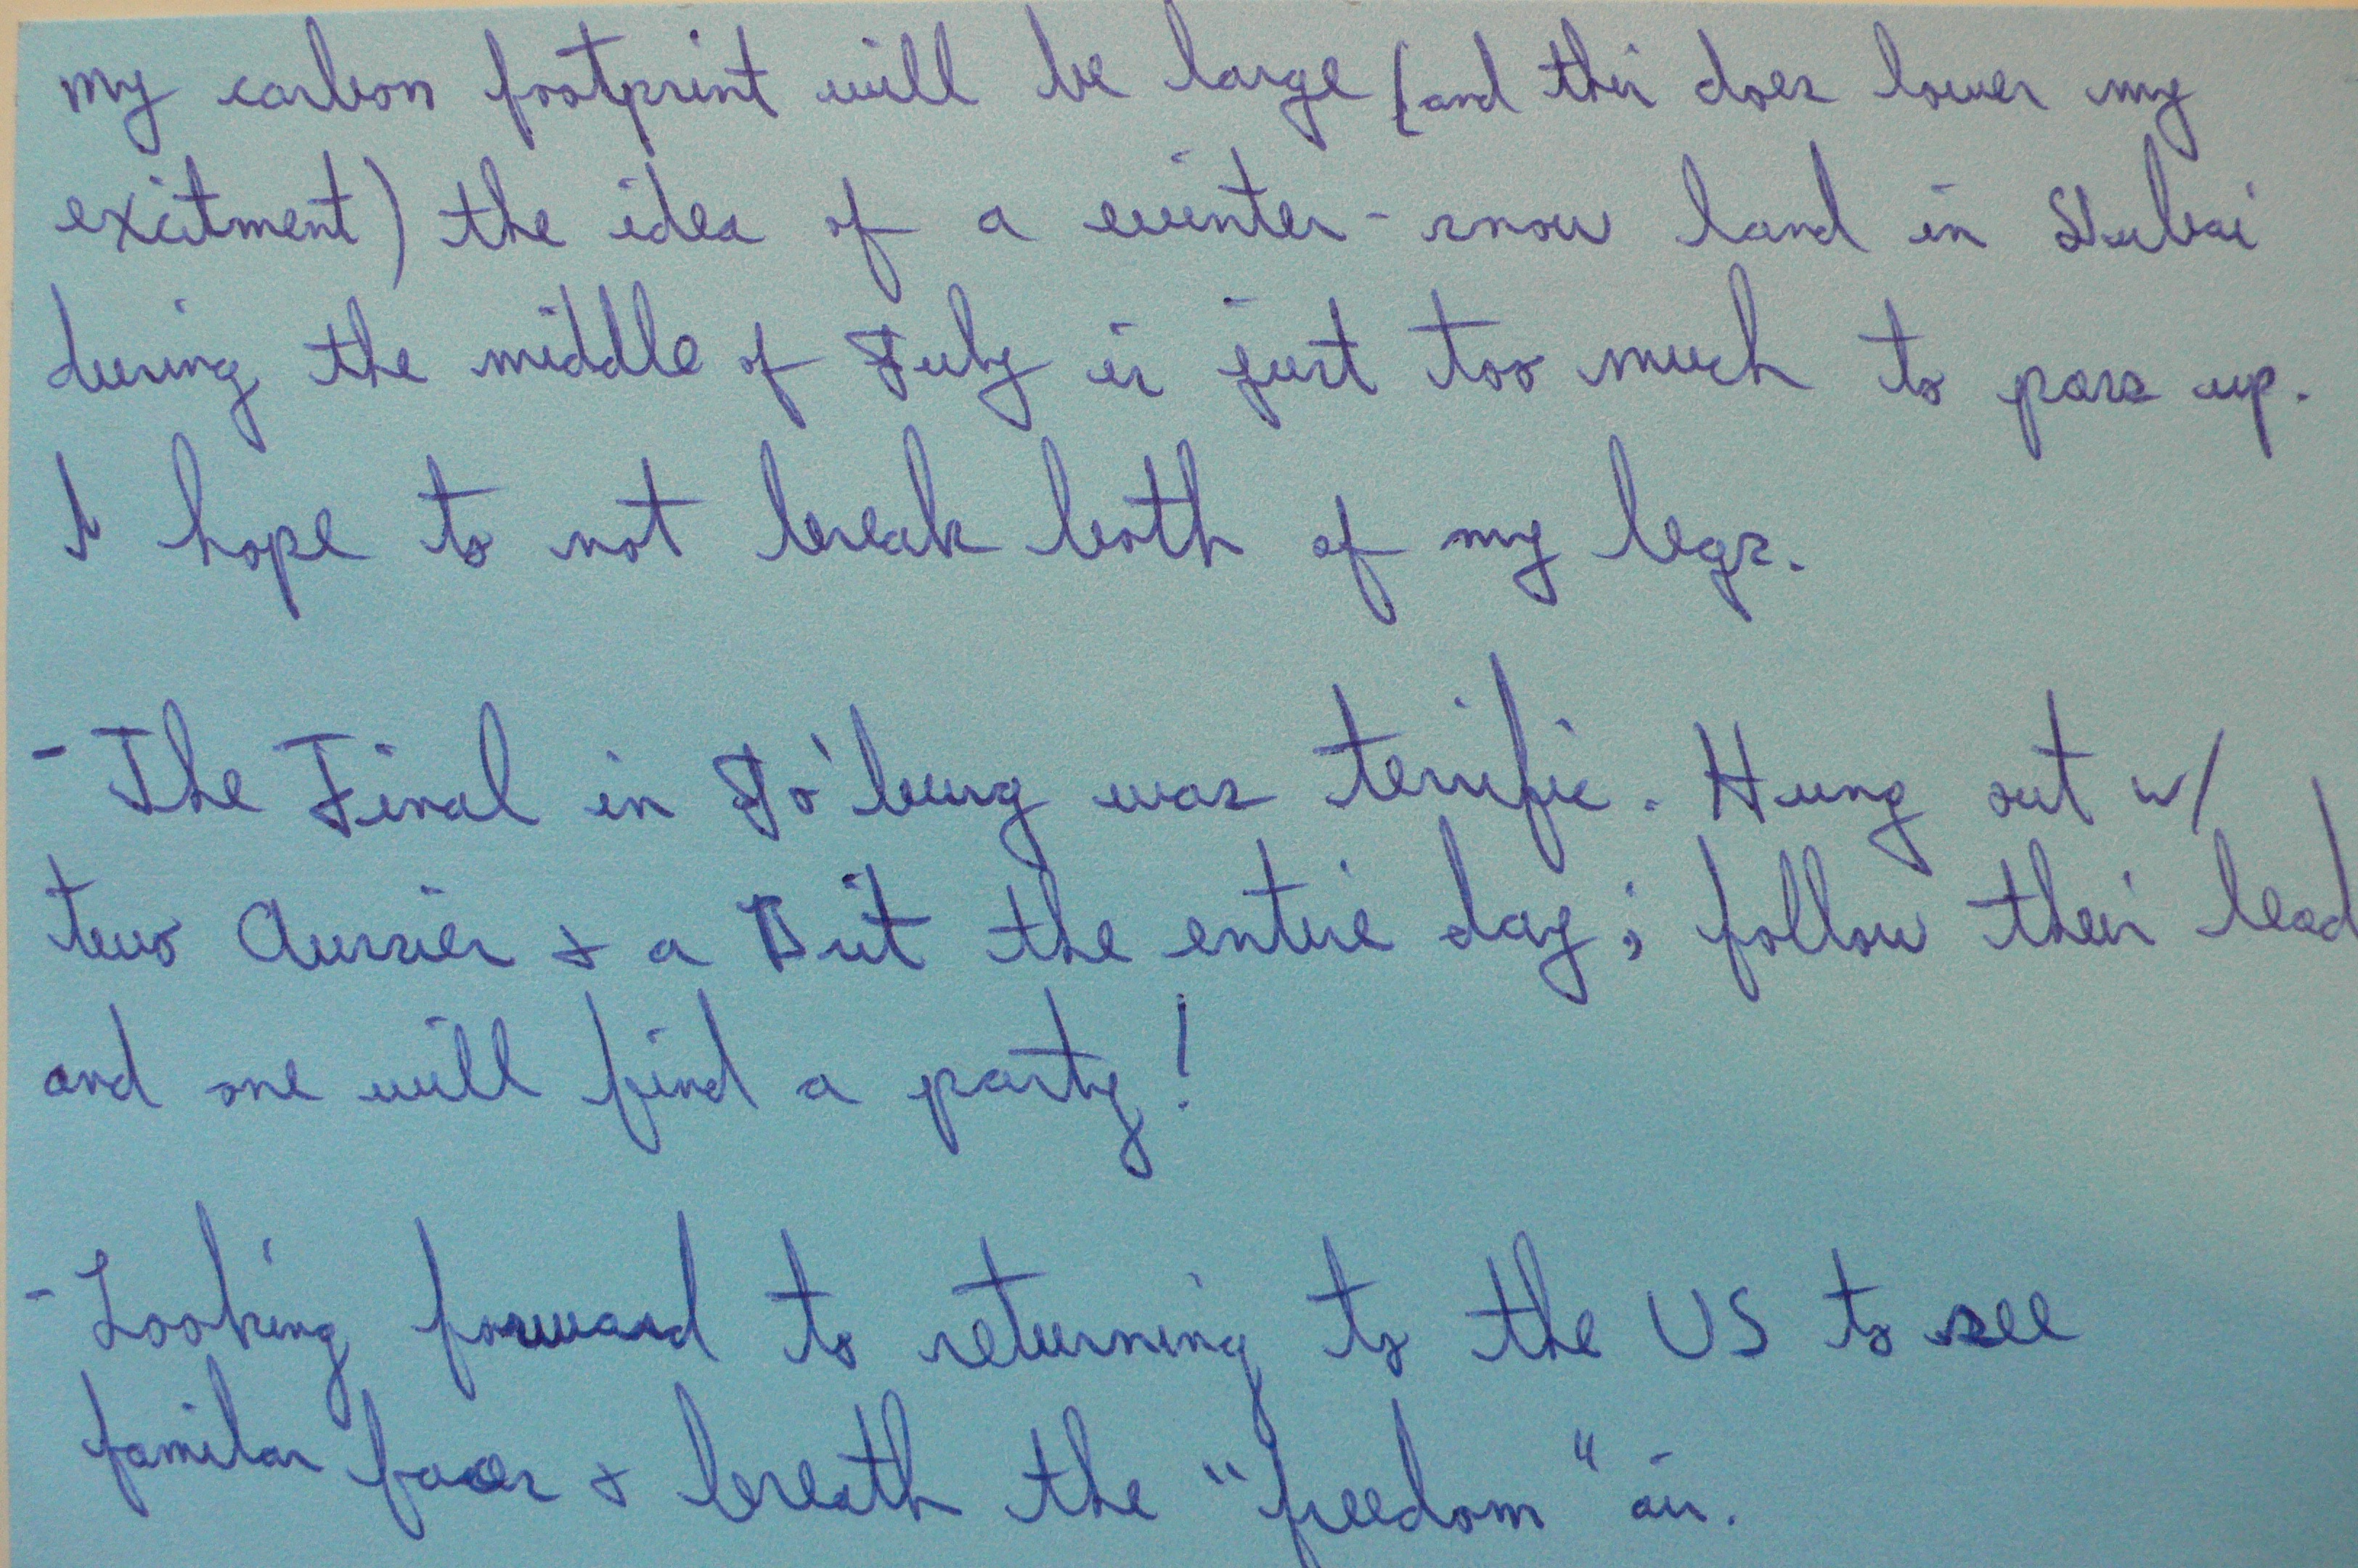 my carbon footprint will be large (and this does lower my
exitment) the idea of a winter-snow land in Dubai
during the middle of July is just too much to pass up.
I hope to not break both of my legs.
- The Final in Jo'burg was terrific. Hung out w/
two Aussies & a Brit the entire day; follow their lead
and one will find a party!
- Looking forward to returning to the US to see
familar faces & breath the "freedom" air.